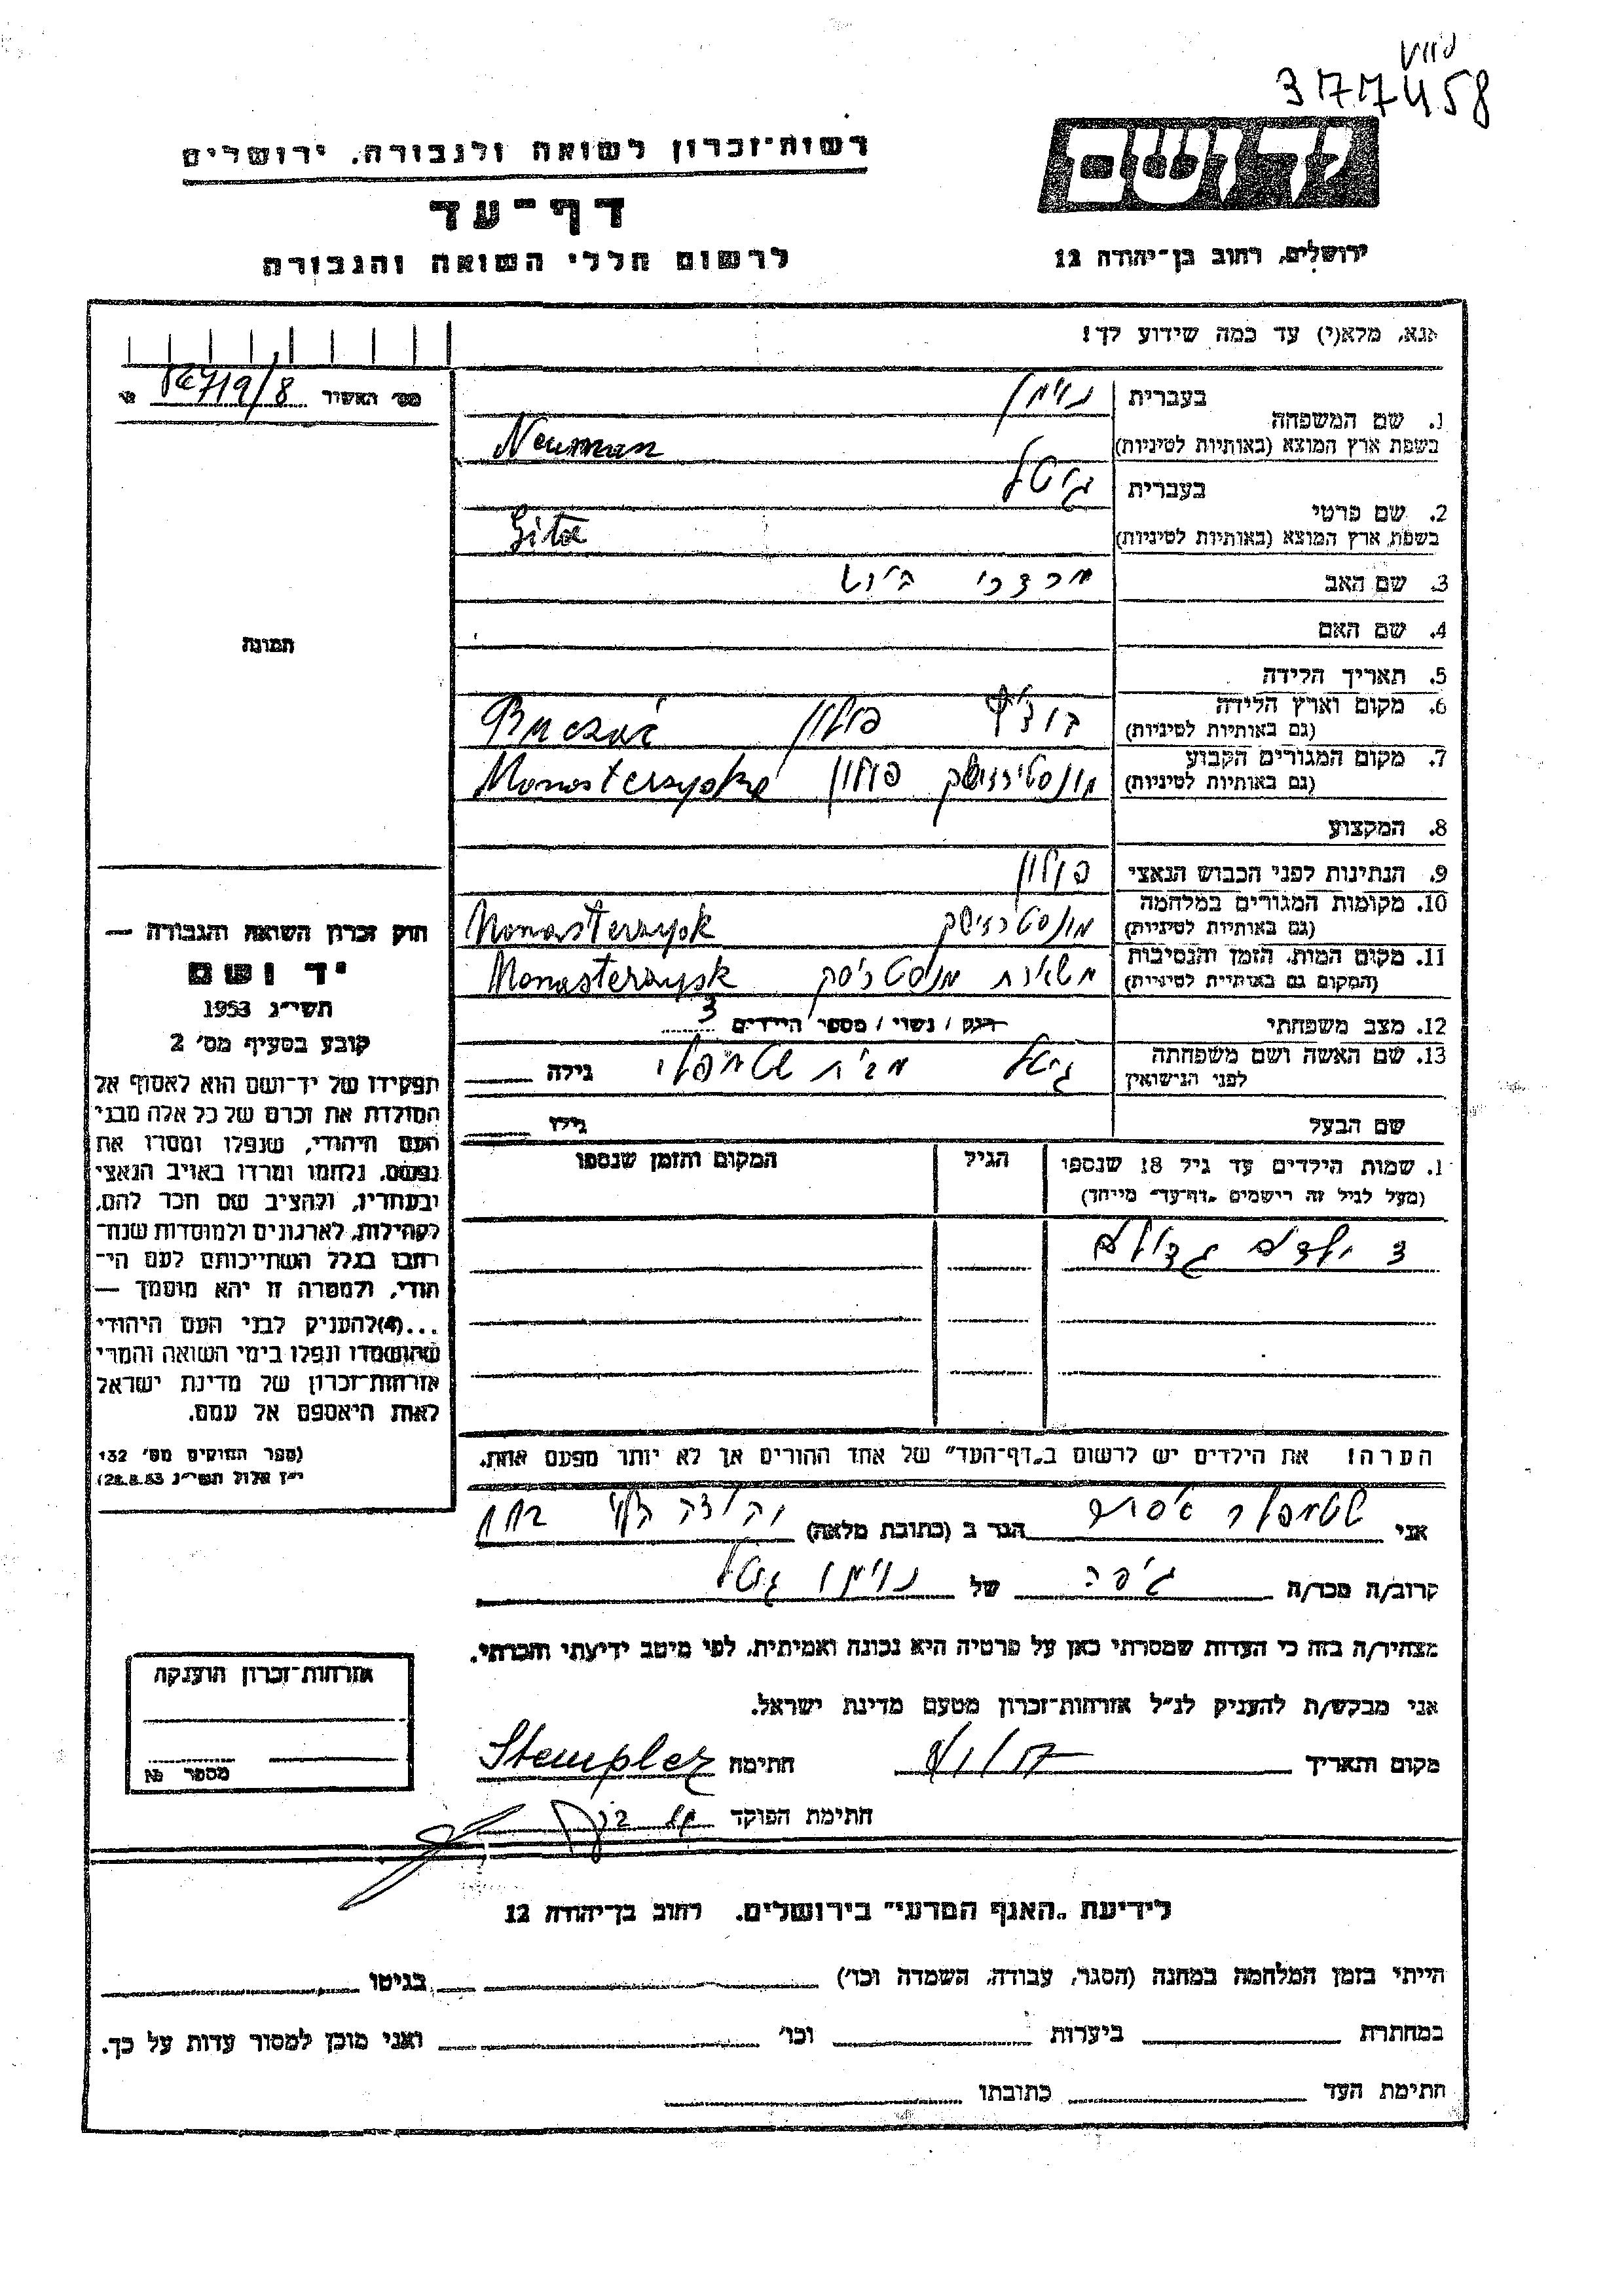 3177458
יד ושם
רשות־זכרון לשואה ולגבורה, ירושלים
דף־עד
לרשום חללי השואה והגבורה
ירושלים, רחוב בן־יהודה 12
אנא, מלא(י) עד כמה שידוע לך!
מס' האשור
1. שם המשפחה
בעברית נוימן
בשפת ארץ המוצא (באותיות לטיניות) Neuman
2. שם פרטי
בעברית גיטל
בשפת ארץ המוצא (באותיות לטיניות) Gita
3. שם האב מרדכי
4. שם האם
5. תאריך הלידה
6. מקום וארץ הלידה
(גם באותיות לטיניות) פולין Buczacz
7. מקום המגורים הקבוע
(גם באותיות לטיניות) פולין Monasterzyska
8. המקצוע
9. הנתינות לפני הכבוש הנאצי פולין
10. מקומות המגורים במלחמה
(גם באותיות לטיניות) Monasterzysk
11. מקום המות, הזמן והנסיבות
(המקום גם באותיות לטיניות) Monasterzysk
12. מצב משפחתי רווק / נשוי / מספר הילדים 3
13. שם האשה ושם משפחתה
לפני הנישואין גיטל מבית שטמפלר גילה
שם הבעל גילו
1. שמות הילדים עד גיל 18 שנספו
(מעל לגיל זה רישמים „דף־עד" מייחד)
הגיל
המקום והזמן שנספו
3 ילדים גדולים
הערה! את הילדים יש לרשום ב„דף־העד" של אחד ההורים אך לא יותר מפעם אחת.
תמונה
חוק זכרון השואה והגבורה —
יד ושם
תשי״ג 1953
קובע בסעיף מס' 2
תפקידו של יד־ושם הוא לאסוף אל
המולדת את זכרם של כל אלה מבני
העם היהודי, שנפלו ומסרו את
נפשם, נלחמו ומרדו באויב הנאצי
ובעוזריו, ולהציב שם וזכר להם,
לקהילות, לארגונים ולמוסדות שנח־
רבו בגלל השתייכותם לעם הי־
הודי, ולמטרה זו יהא מוסמך —
...(4)להעניק לבני העם היהודי
שהושמדו ונפלו בימי השואה והמרי
אזרחות־זכרון של מדינת ישראל
לאות היאספם אל עמם.
(ספר החוקים מס' 132
י״ז אלול תשי״ג 28.8.53)
אני שטמפלר הגר ב (כתובת מלאה)
קרוב/ה מכר/ה גיסה של נוימן גיטל
מצהיר/ה בזה כי העדות שמסרתי כאן על פרטיה היא נכונה ואמיתית, לפי מיטב ידיעתי והכרתי.
אני מבקש/ת להעניק לנ״ל אזרחות־זכרון מטעם מדינת ישראל.
מקום ותאריך חתימה Stempler
חתימת הפוקד
אזרחות־זכרון הוענקה
מספר №
לידיעת „האגף המדעי" בירושלים, רחוב בן־יהודה 12
הייתי בזמן המלחמה במחנה (הסגר, עבודה, השמדה וכו') בגיטו
במחתרת ביערות וכו' ואני מוכן למסור עדות על כך.
חתימת העד כתובתו